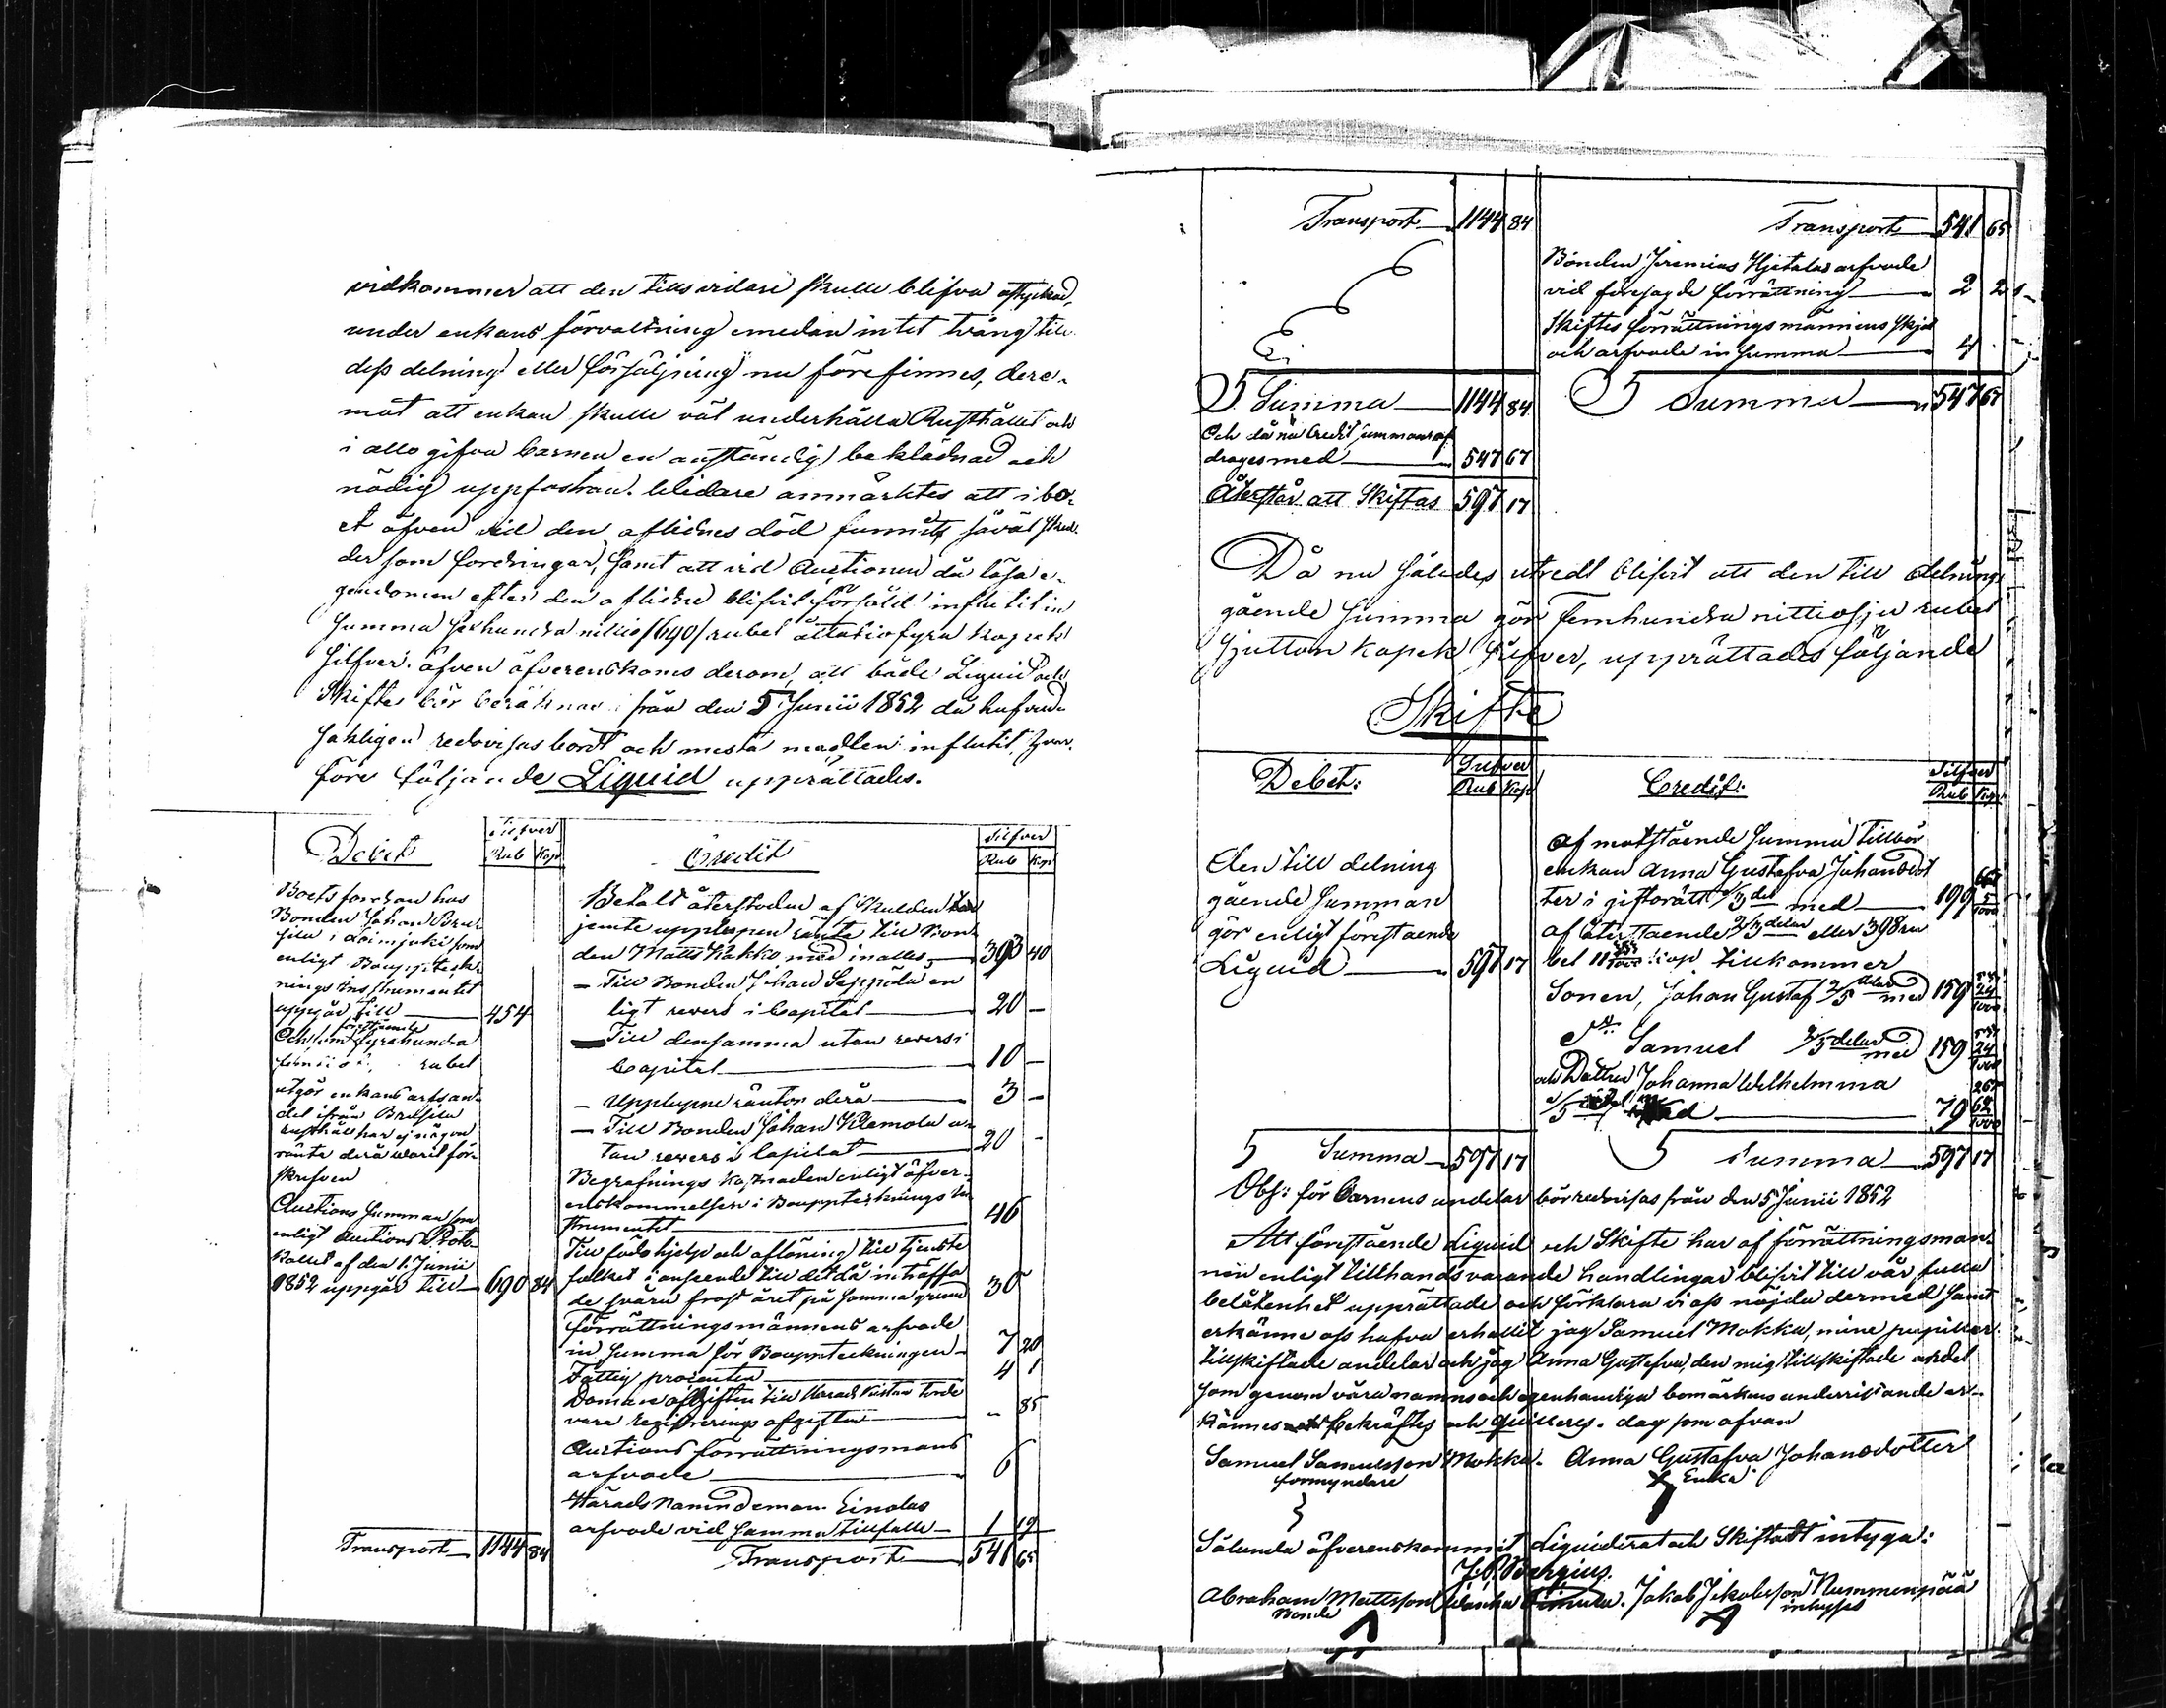 vidkommer att den tills vidare skulle blifva ostyckad,
under enkans förvaltning emedan intet tvång till
dess delning eller försäljning nu förefinnes, dere-
mot att enkan skulle väl underhålla Rusthållet och
i allo gifva barnen en anständig beklädnad och
nödig uppfostran. Widare anmärktes att i bo-
et äfven vid den aflidnes död funnits såväl skul-
der som fordringar, samt att vid Auctionen då lösa e-
gendomen efter den aflidne blifvit försåld influtit in
summa sexhundra nittio /690/ rubel åttatiofyra kopek
silfver. äfven öfverenskoms derom, att både Liquid och
Skifte bör beräknas från den 5 Junii 1852 då hufvud-
sakligen redovisas bordt och mesta medlen influtit, hvar-
före följande Liquid upprättades.
Debet
Silfver
Rub Kop
Credit
Silfver
Rub Kop
Boets fordran hos
Bonden Johan
i Loimjoki som
enligt Bouppteck-
nings Instrumentet
uppgår till 454
förestående
fyrahundra
rubel
utgör enkans arfsan-
del ifrån
rusthåll har ej någon
ränta derå warit för-
skrefven
Auctions Summan som
enligt Auctions Proto-
kollet af den 1. Junii
1852 uppgår till 690 84
Transport 1144 84
Betalt återstoden af skulden
jemte upplupen ränta till Bon-
den Matts Kakko med in alles 393 40
— Till Bonden Johan Seppälä en
ligt revers i Capital 20 —
— Till densamma utan revers i
Capital 10 —
— Upplupne räntor derå 3 —
— Till Bonden Johan Klemola u-
tan revers i Capital 20 -
Begrafnings kostnaden enligt öfver-
enskommelsen i Bouppteknings In
strumentet 46
Till födohjelp och aflöning till tjenste
folket i anseende till det då inträffa
de svåra frost året på samma grund 30
Förrättningsmännens arfvode
in summa för Bouppteckningen 7 20
Fattig procenten 4 1
vara registrerings afgiften „ 85
Auctions förrättningsmans
arfvode 6
Härads Nämndeman Einolas
arfvode vid samma tillfälle 1 19
Transport 541 65
Transport 1144 84
Transport 541 65
Bonden Jeremias Hjetalas arfvode
vid föresagde förrättning 2 2
Skiftes förrättningsmännens skjuts
och arfvode in summa 4
S Summa 1144 84
S Summa „ 547 67
Och då nu Credit summan af
drages med 547 67
Återstår att Skiftas 597 17
Då nu således utredt blifvit att den till delning
gående summa gör Femhundra nittiosju rubel
Sjutton kopek Silfver, upprättades följande
Skifte
Debet:
Silfver
Rub Kop
Credit:
Silfver
Rub Kop
Den till delning
gående Summan
gör enligt förestående
Liquid 597 17
Af motstående Summa tillkör
enkan Anna Gustafva Johansdot
ter i giftorätt 1/3 del med 199
af återstående 2/3 delar eller 398 ru
bel 11 kop tillkommer
Sonen, Johan Gustaf 2/5 delar med 159
Samuel 2/5 delar med 159
och Dottren Johanna Wilhelmina
1/5 del med 79
S Summa 597 17
S Summa 597 17
Obs: för Barnens andelar bör redovisas från den 5 Junii 1852
Att förestående Liquid och Skifte har af förrättningsmän-
nen enligt tillhandsvarande handlingar blifvit till vår fulla
belåtenhet upprättade och förklara vi oss nöjda dermed samt
erkänne oss hafva erhållit jag Samuel Mokka, mine pupillers
tillskiftade andelar och jag Anna Gustafva, den mig tillskiftade andel
som genom våra namns och egenhändiga bomärkens underritande er-
kännes bekräftes och qvitteres. dag som ofvan
Samuel Samuelsson Mokka. Anna Gustafva Johansdotter
förmyndare
Enka
Sålunda öfverenskommit Liquiderat och Skiftadt intyga:
J. P. Bergius.
Abraham Mattsson Jakob Jakobsson Nummenpää
Bonde
inhyses